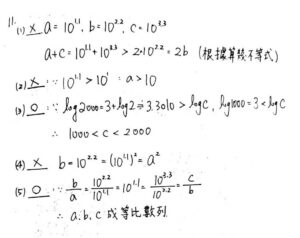 11.
(1) X a = 10^1.1, b = 10^2.2, c = 10^3.3
a+c = 10^1.1 + 10^3.3 > 2·10^2.2 = 2b (根據算幾不等式)
(2) X ∵ 10^1.1 > 10^1 ∴ a > 10
(3) O ∵ log2000 = 3 + log2 ≒ 3.3010 > logc, log1000 = 3 < logc
∴ 1000 < c < 2000
(4) X b = 10^2.2 = (10^1.1)^2 = a^2
(5) O ∵ b/a = 10^2.2/10^1.1 = 10^1.1 = 10^3.3/10^2.2 = c/b
∴ a.b.c 成等比數列